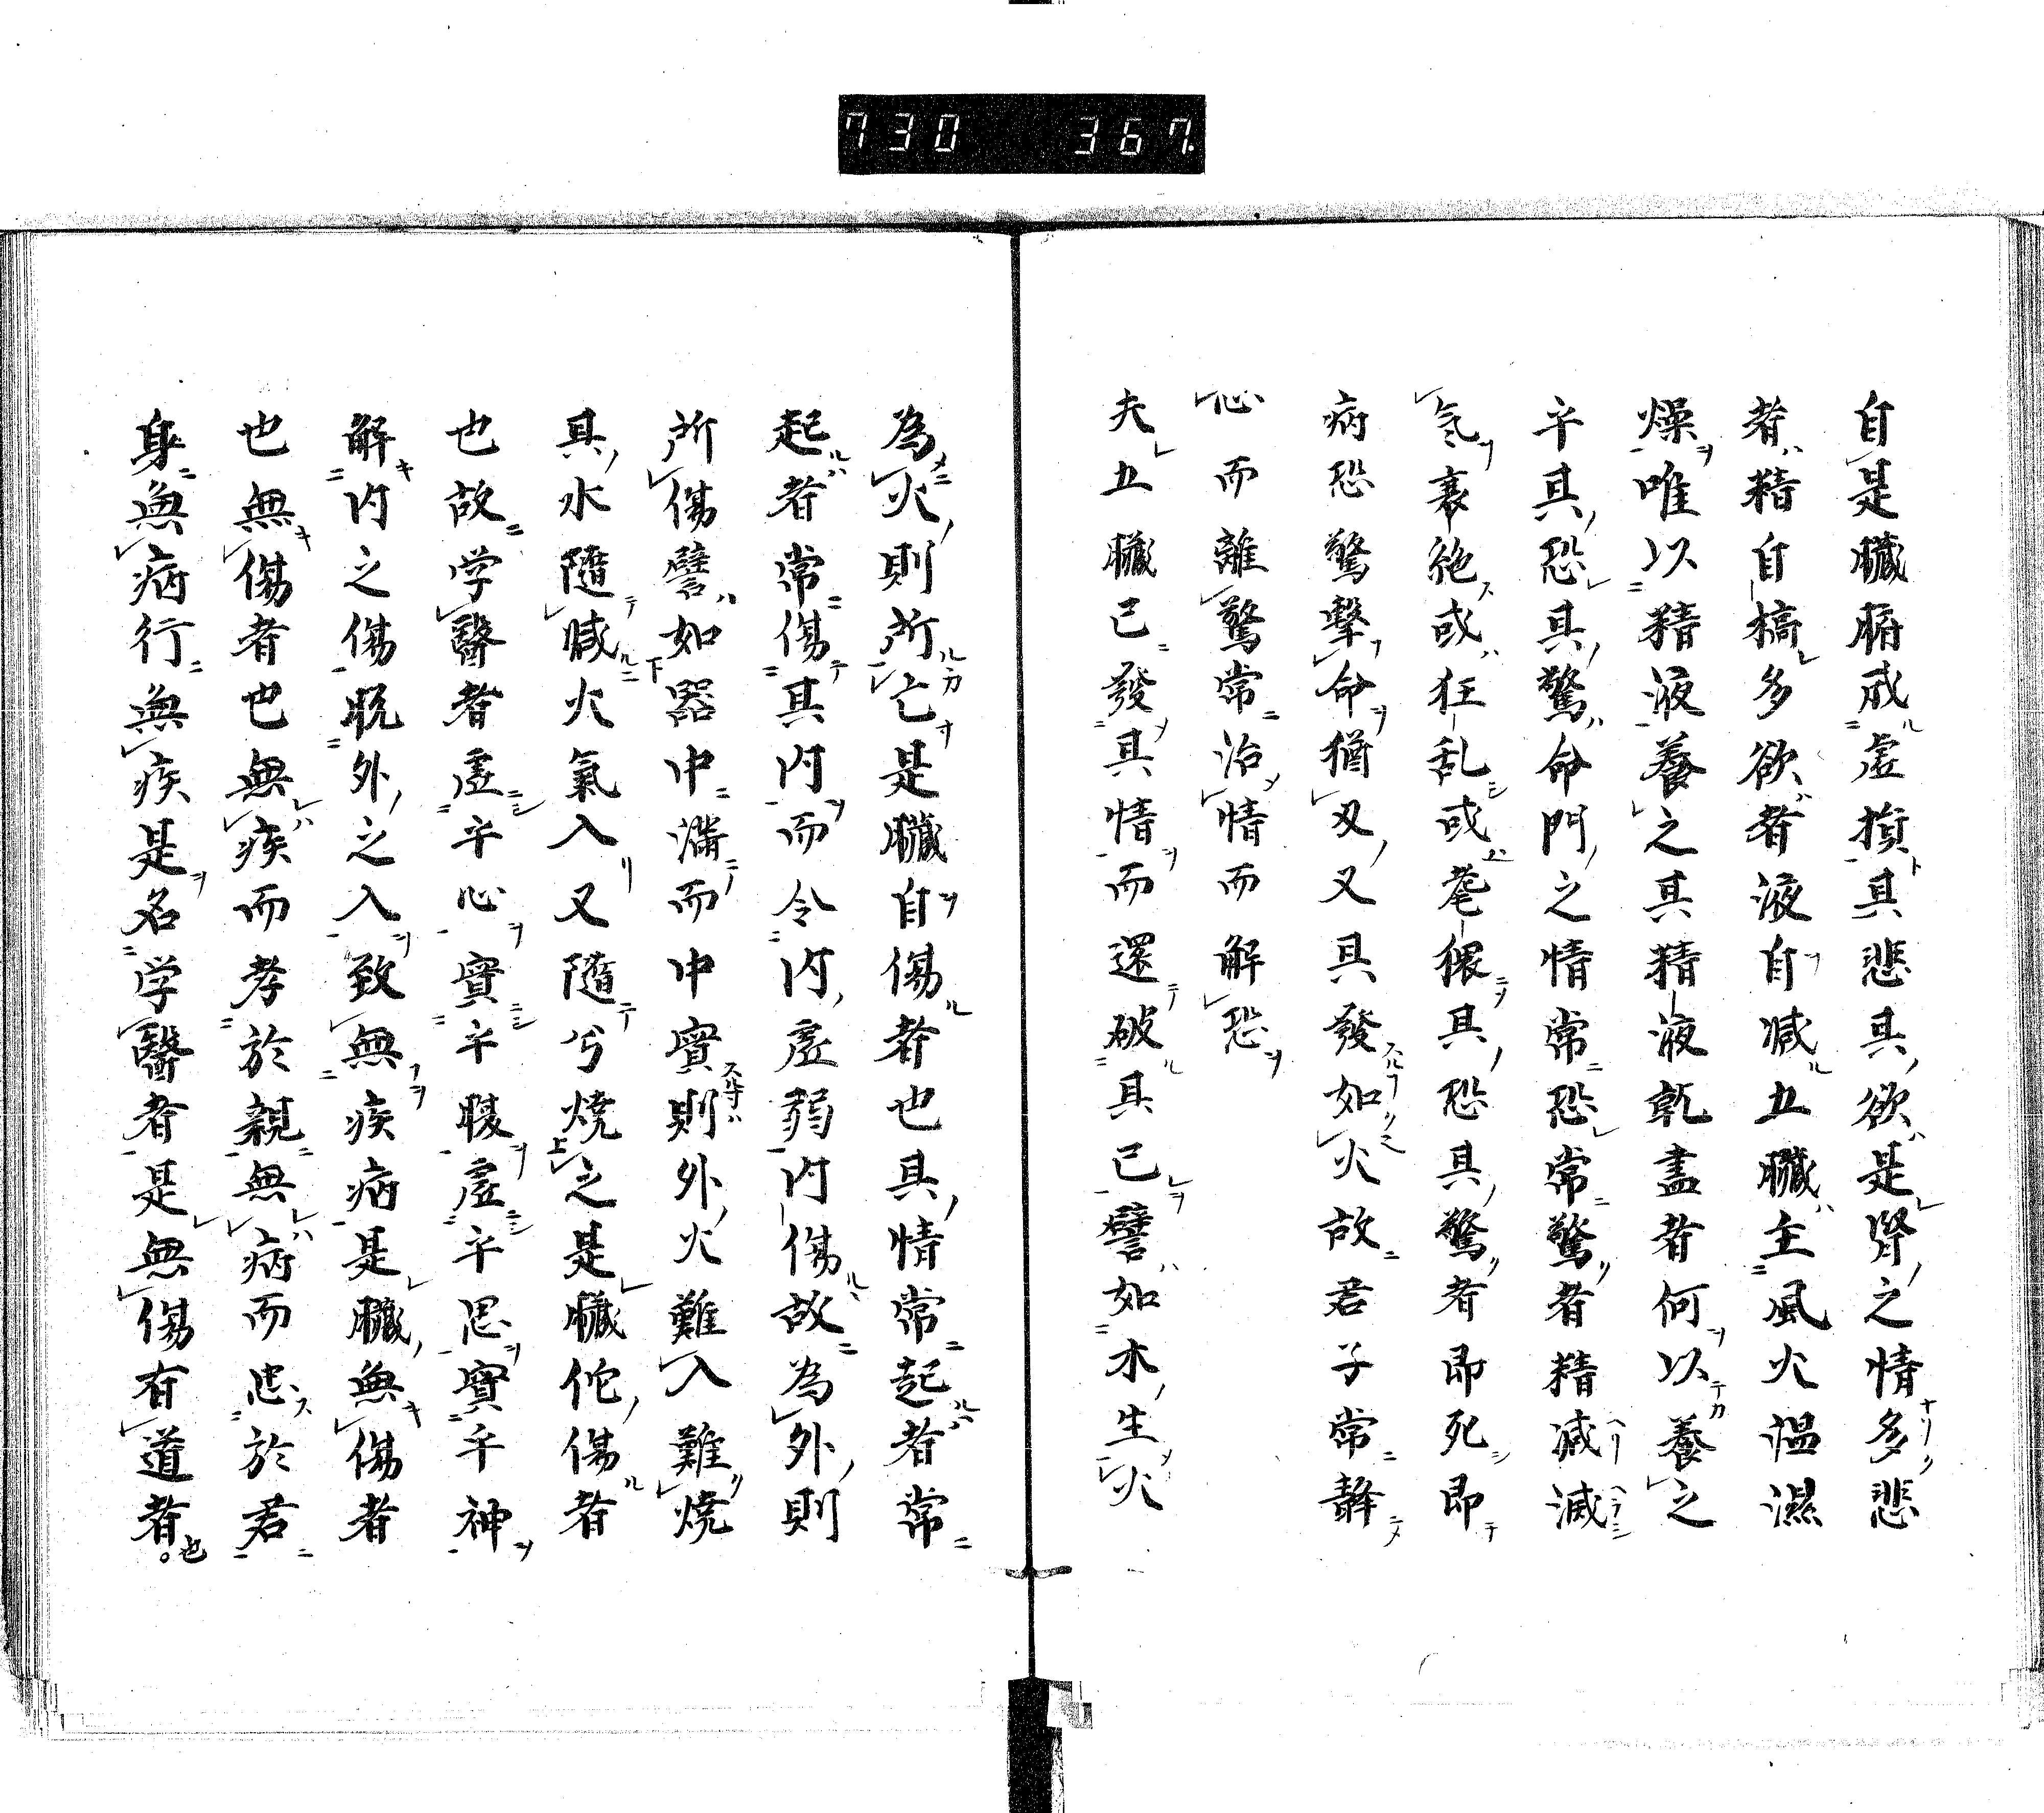 730 367.
自是臓腑戒虚損其悲其欲是腎之情多悲
者精自槁多欲者液自减五臓主風火温濕
燥唯以精液養之其精液乾盡者何以養之
乎其恐其驚命門之情常恐常驚者精减滅
气衰絶或狂乱或耄猥其恐其驚者即死即
病恐驚擊命猶刄又具發如火故君子常靜
心而離驚常治情而解恐
夫五臓已發其情而還破其已譬如木生火
為火則所亡是臓自傷者也其情常起者常
起者常傷其内而令内虚弱内傷故為外則
所傷譬如器中満而中實則外火難入難燒
其水隨减火氣入又隨兮燒之是臓佗傷者
也故学醫者虚乎心實乎腹虚乎思實乎神
解内之傷脱外之入致無疾病是臓無傷者
也無傷者也無疾而孝於親無病而忠於君
身無病行無疾是名学醫者是無傷有道者也。